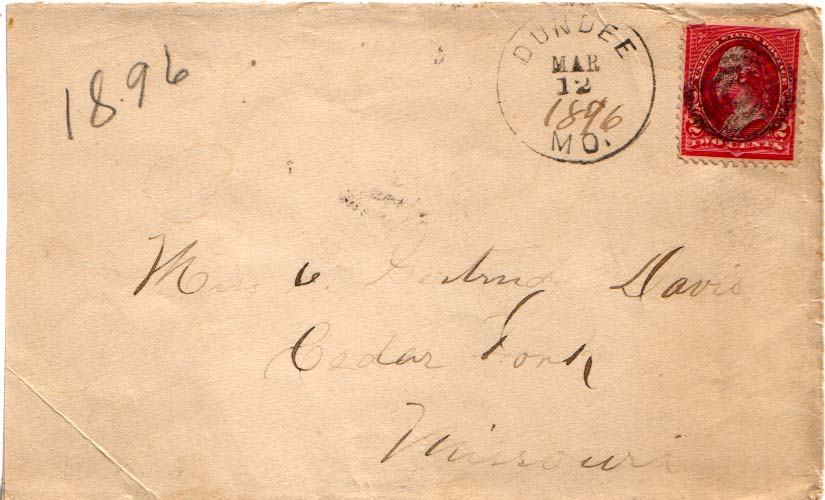 1896
DUNDEE
MAR
12
1896
MO.
UNITED STATES POSTAGE
2 2
TWO CENTS
Miss C. Gertrude Davis
Cedar Fork
Missouri